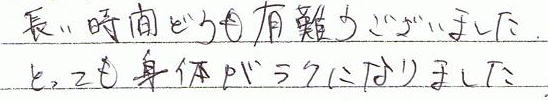 長い時間どうも有難うございました.
とっても身体がラクになりました